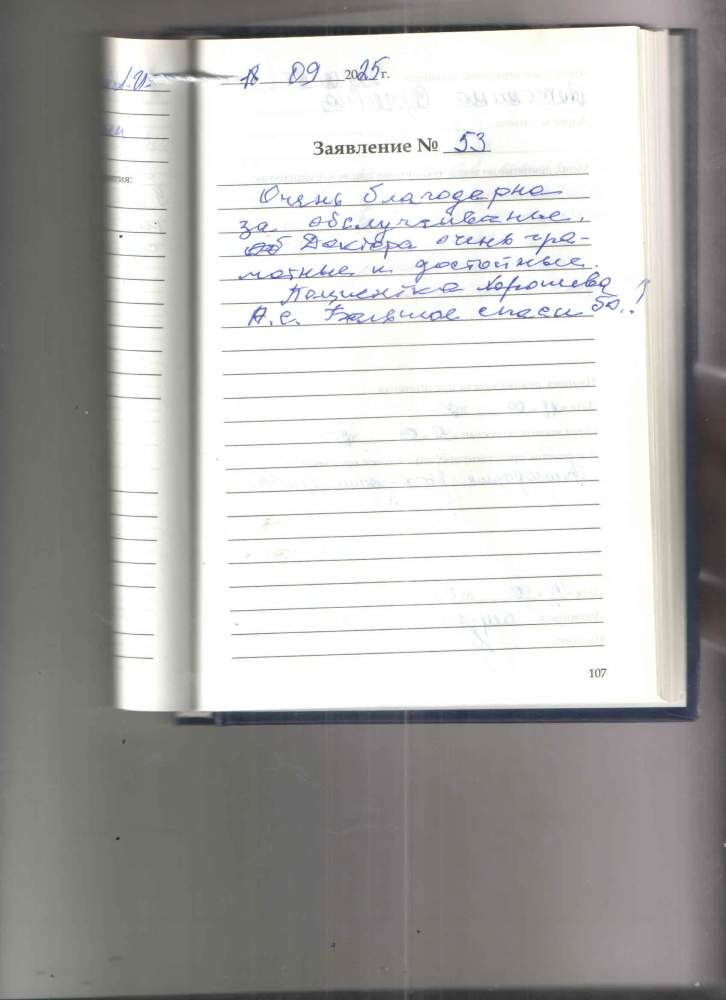 18 09 2025 г.
Заявление № 53
Очень благодарна
за обслуживание.
Доктора очень гра-
мотные и достойные.
Пациентка Хорошева
А.С. Большое спасибо..!
тия:
107